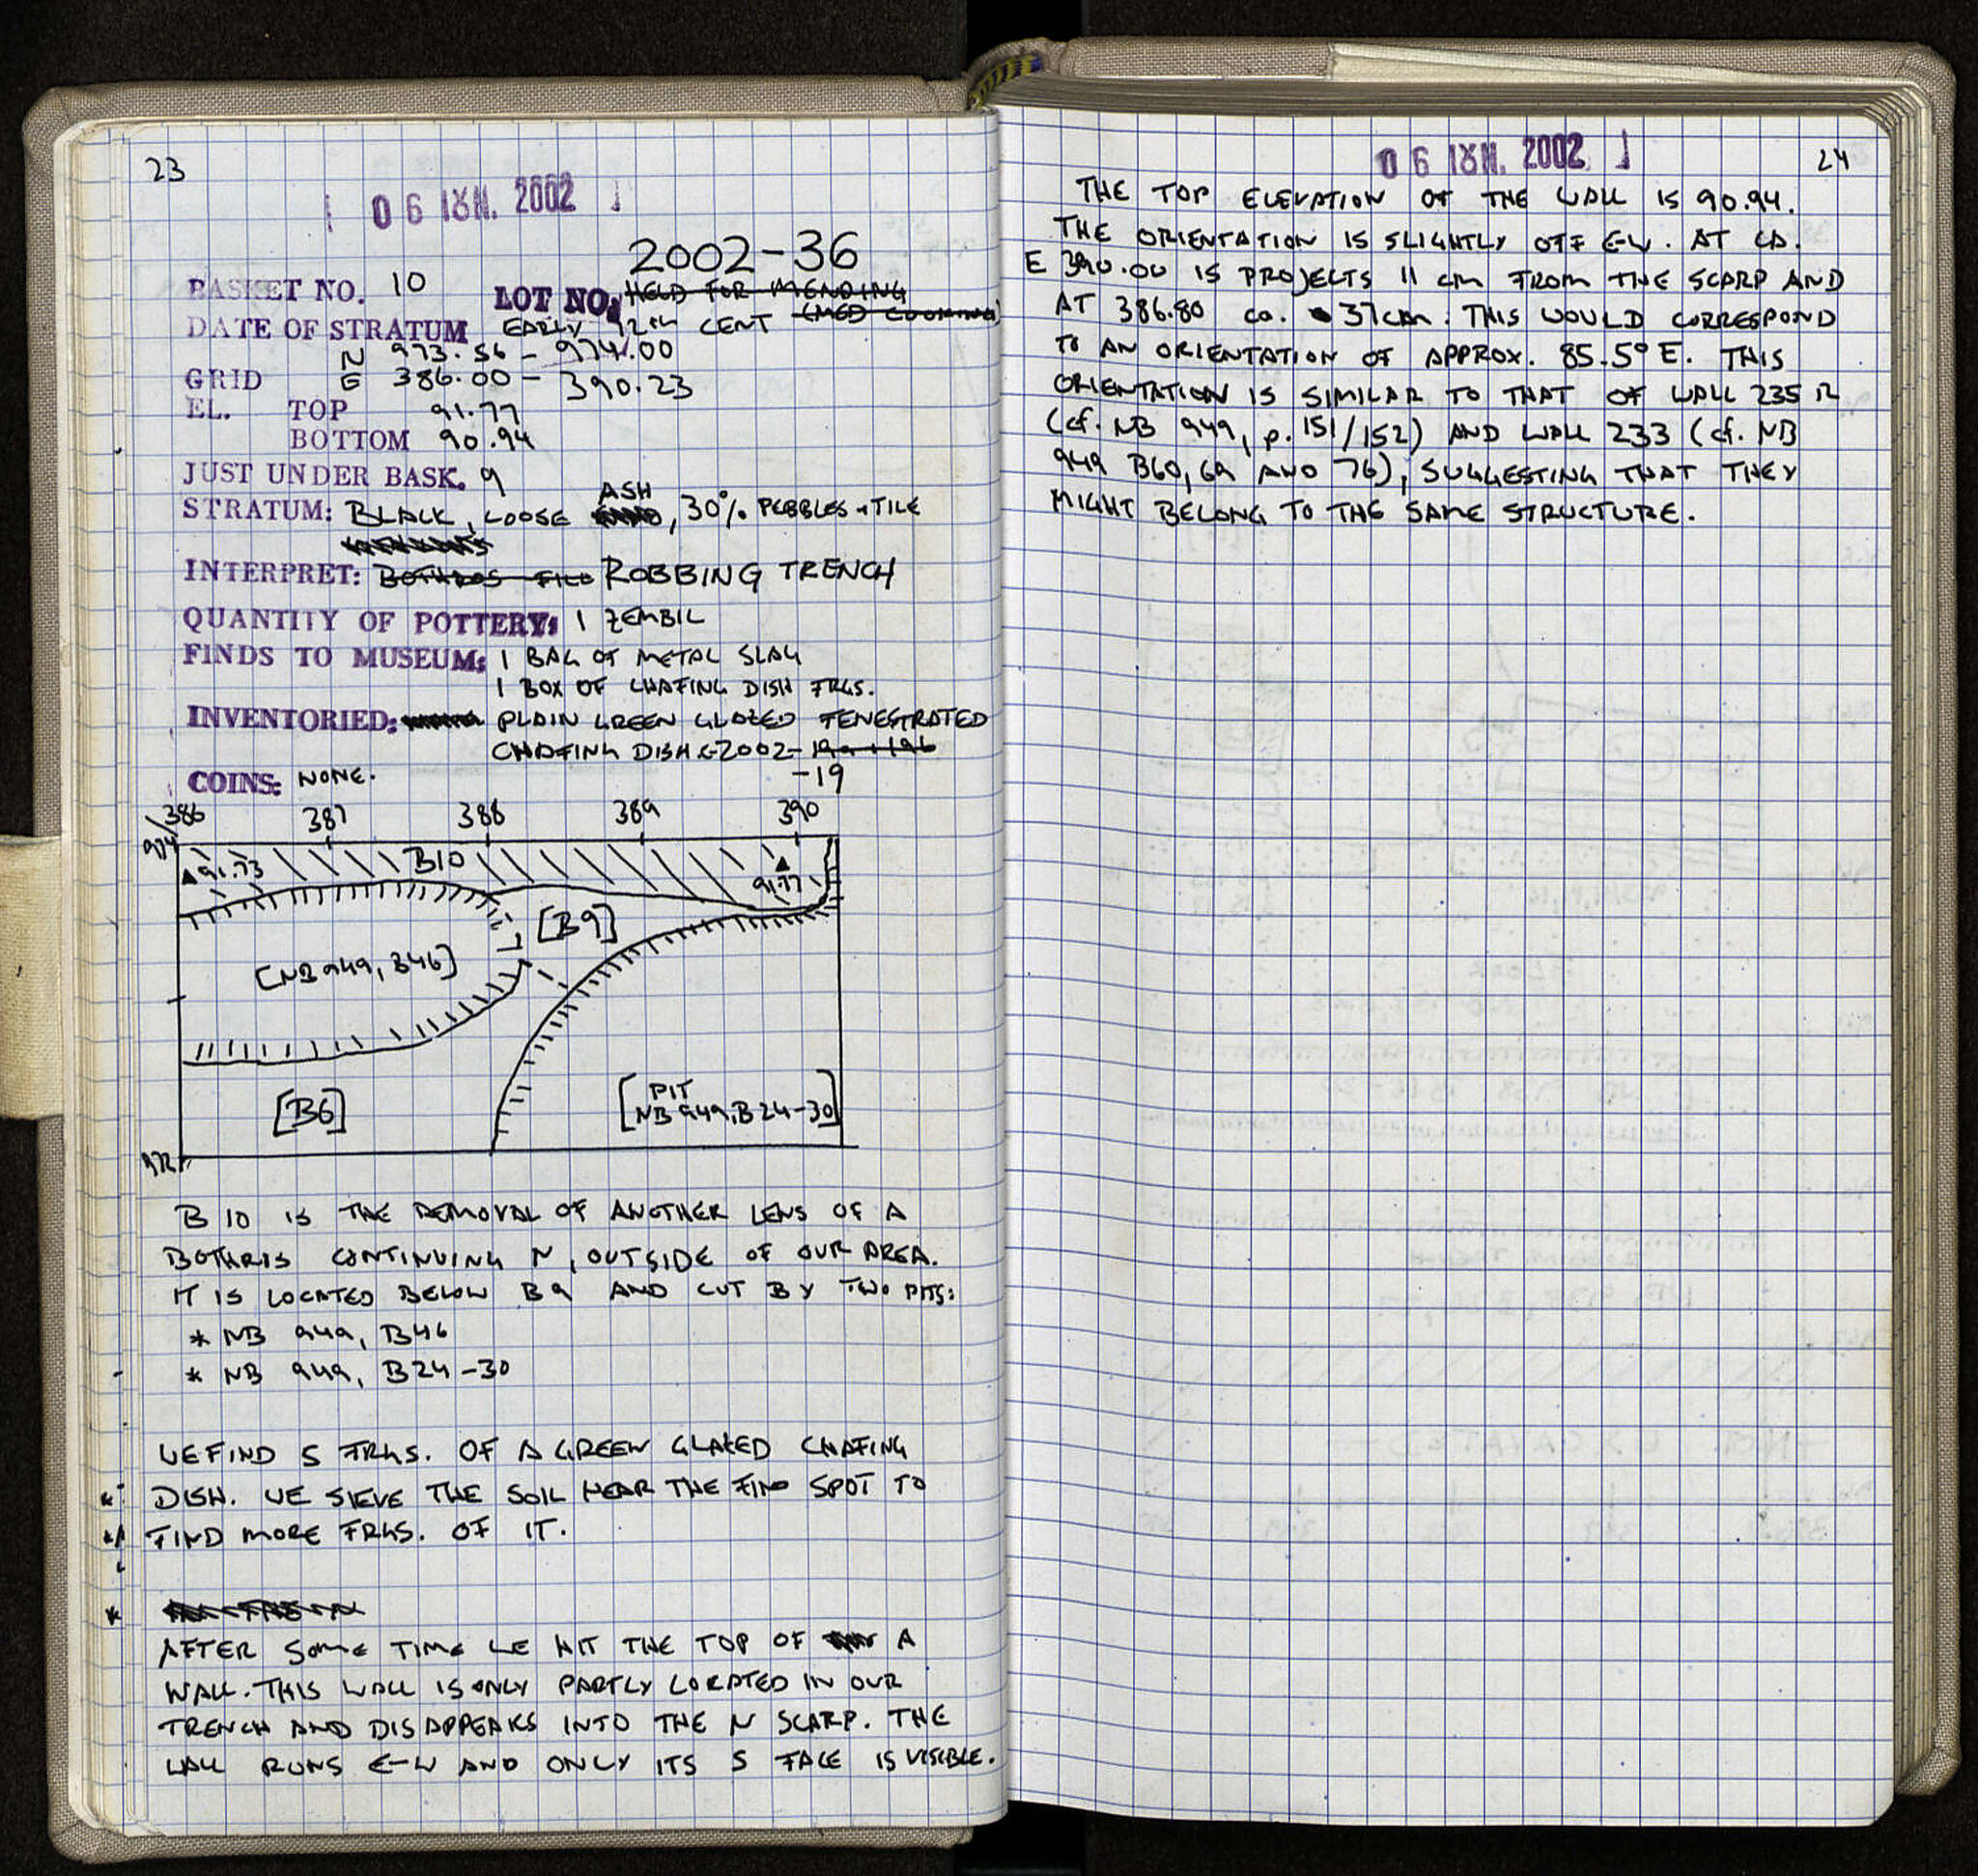 23
06 ΙΟΥΝ. 2002
2002-36
BASKET NO. 10 LOT NO. HELD FOR MENDING
DATE OF STRATUM EARLY 12TH CENT
GRID N 973.56 - 974.00
E 386.00 - 390.23
EL. TOP 91.77
BOTTOM 90.94
JUST UNDER BASK. 9
STRATUM: BLACK, LOOSE ASH, 30% PEBBLES + TILE
INTERPRET: BOTHROS FILL ROBBING TRENCH
QUANTITY OF POTTERY: 1 ZEMBIL
FINDS TO MUSEUM: 1 BAG OF METAL SLAG
1 BOX OF CHAFING DISH FRGS.
INVENTORIED: PLAIN GREEN GLAZED FENESTRATED
CHAFING DISH C-2002-19a+19b
-19
COINS: NONE.
386 387 388 389 390
974
B10
91.73
91.77
[B9]
[NB 949, B46]
[B6]
[PIT
NB 949, B24-30]
972
B 10 IS THE REMOVAL OF ANOTHER LENS OF A
BOTHROS CONTINUING N, OUTSIDE OF OUR AREA.
IT IS LOCATED BELOW B9 AND CUT BY TWO PITS:
* NB 949, B46
* NB 949, B24-30
WE FIND 5 FRGS. OF A GREEN GLAZED CHAFING
DISH. WE SIEVE THE SOIL NEAR THE FIND SPOT TO
FIND MORE FRGS. OF IT.
AFTER SOME TIME WE HIT THE TOP OF A
WALL. THIS WALL IS ONLY PARTLY LOCATED IN OUR
TRENCH AND DISAPPEARS INTO THE N SCARP. THE
WALL RUNS E-W AND ONLY ITS S FACE IS VISIBLE.
06 ΙΟΥΝ. 2002
24
THE TOP ELEVATION OF THE WALL IS 90.94.
THE ORIENTATION IS SLIGHTLY OFF E-W. AT CA.
E 390.00 IS PROJECTS 11 CM FROM THE SCARP AND
AT 386.80 CA. 37CM. THIS WOULD CORRESPOND
TO AN ORIENTATION OF APPROX. 85.5° E. THIS
ORIENTATION IS SIMILAR TO THAT OF WALL 235
(cf. NB 949, p. 151/152) AND WALL 233 (cf. NB
949 B60, 69 AND 76), SUGGESTING THAT THEY
MIGHT BELONG TO THE SAME STRUCTURE.